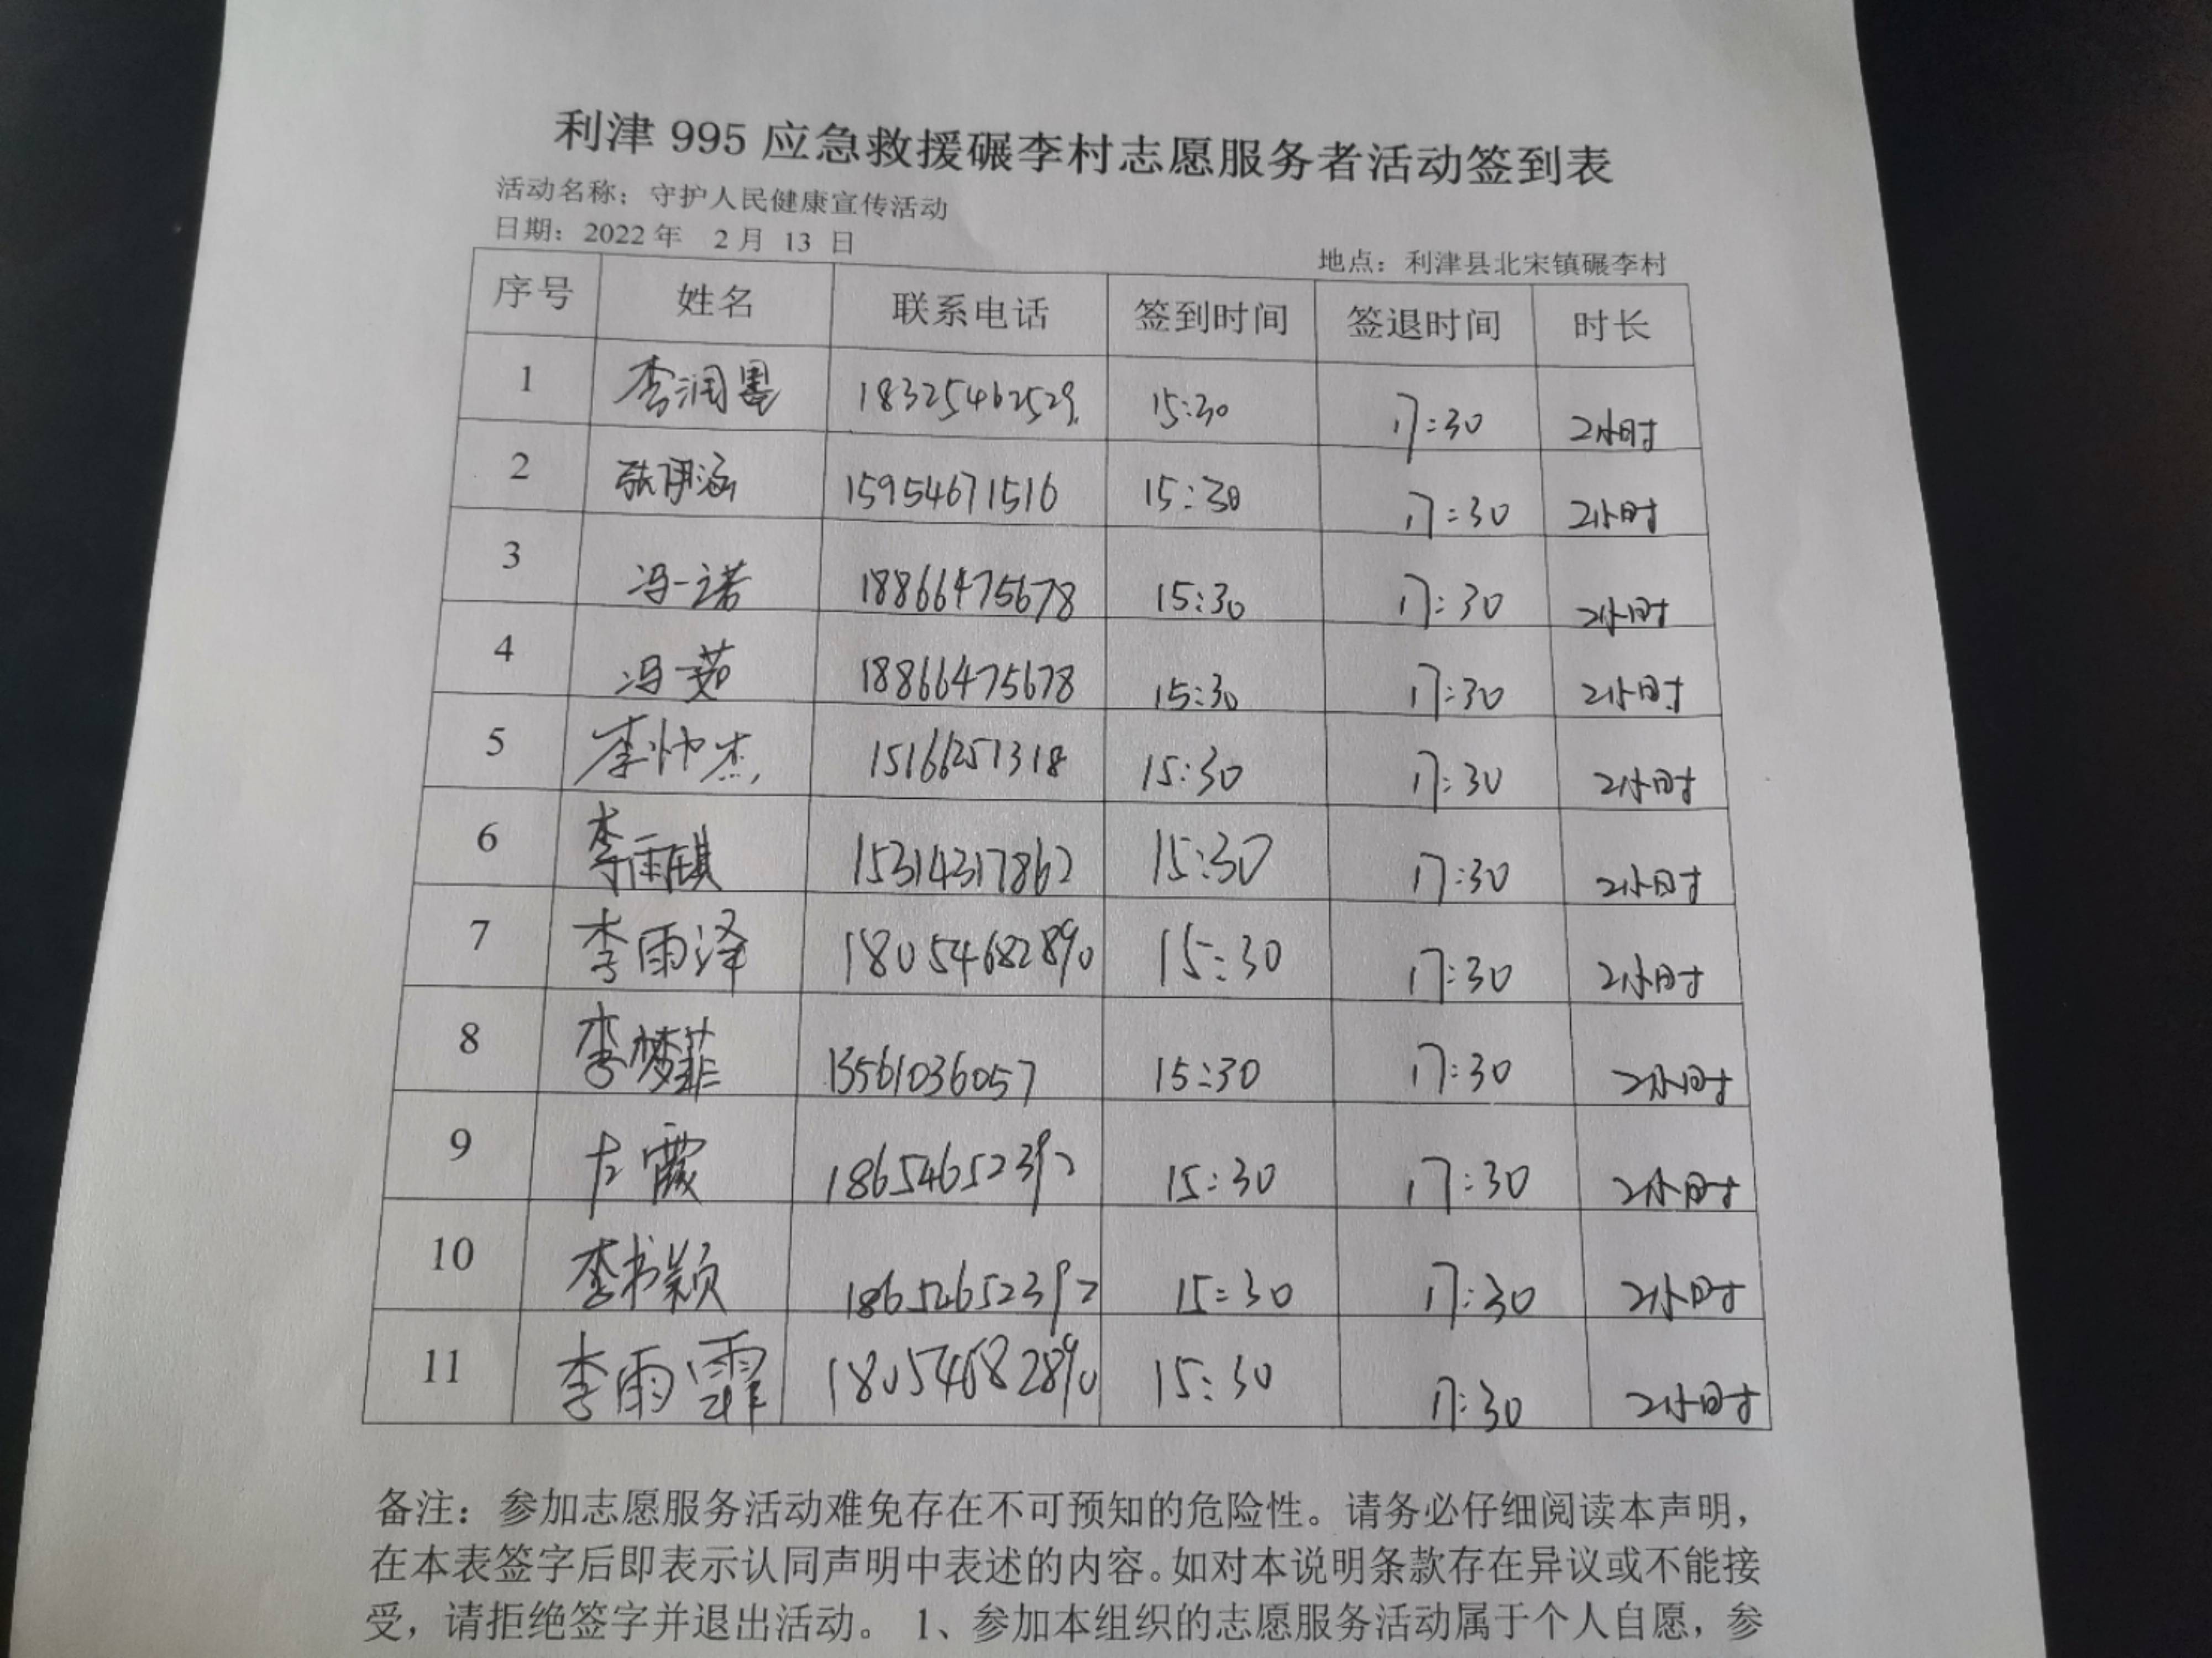 利津 995 应急救援碾李村志愿服务者活动签到表
活动名称：守护人民健康宣传活动
日期：2022 年 2 月 13 日
地点：利津县北宋镇碾李村
序号 姓名 联系电话 签到时间 签退时间 时长
1 李润墨 18325462529 15:30 17:30 2小时
2 张玥涵 15954671516 15:30 17:30 2小时
3 冯一诺 18866475678 15:30 17:30 2小时
4 冯一茹 18866475678 15:30 17:30 2小时
5 李帅杰 15166251318 15:30 17:30 2小时
6 李雨祺 15314317862 15:30 17:30 2小时
7 李雨泽 18054682890 15:30 17:30 2小时
8 李梦菲 13561036057 15:30 17:30 2小时
9 左霞 18654652392 15:30 17:30 2小时
10 李书颖 18654652392 15:30 17:30 2小时
11 李雨霏 18054682890 15:30 17:30 2小时
备注：参加志愿服务活动难免存在不可预知的危险性。请务必仔细阅读本声明，
在本表签字后即表示认同声明中表述的内容。如对本说明条款存在异议或不能接
受，请拒绝签字并退出活动。 1、参加本组织的志愿服务活动属于个人自愿，参